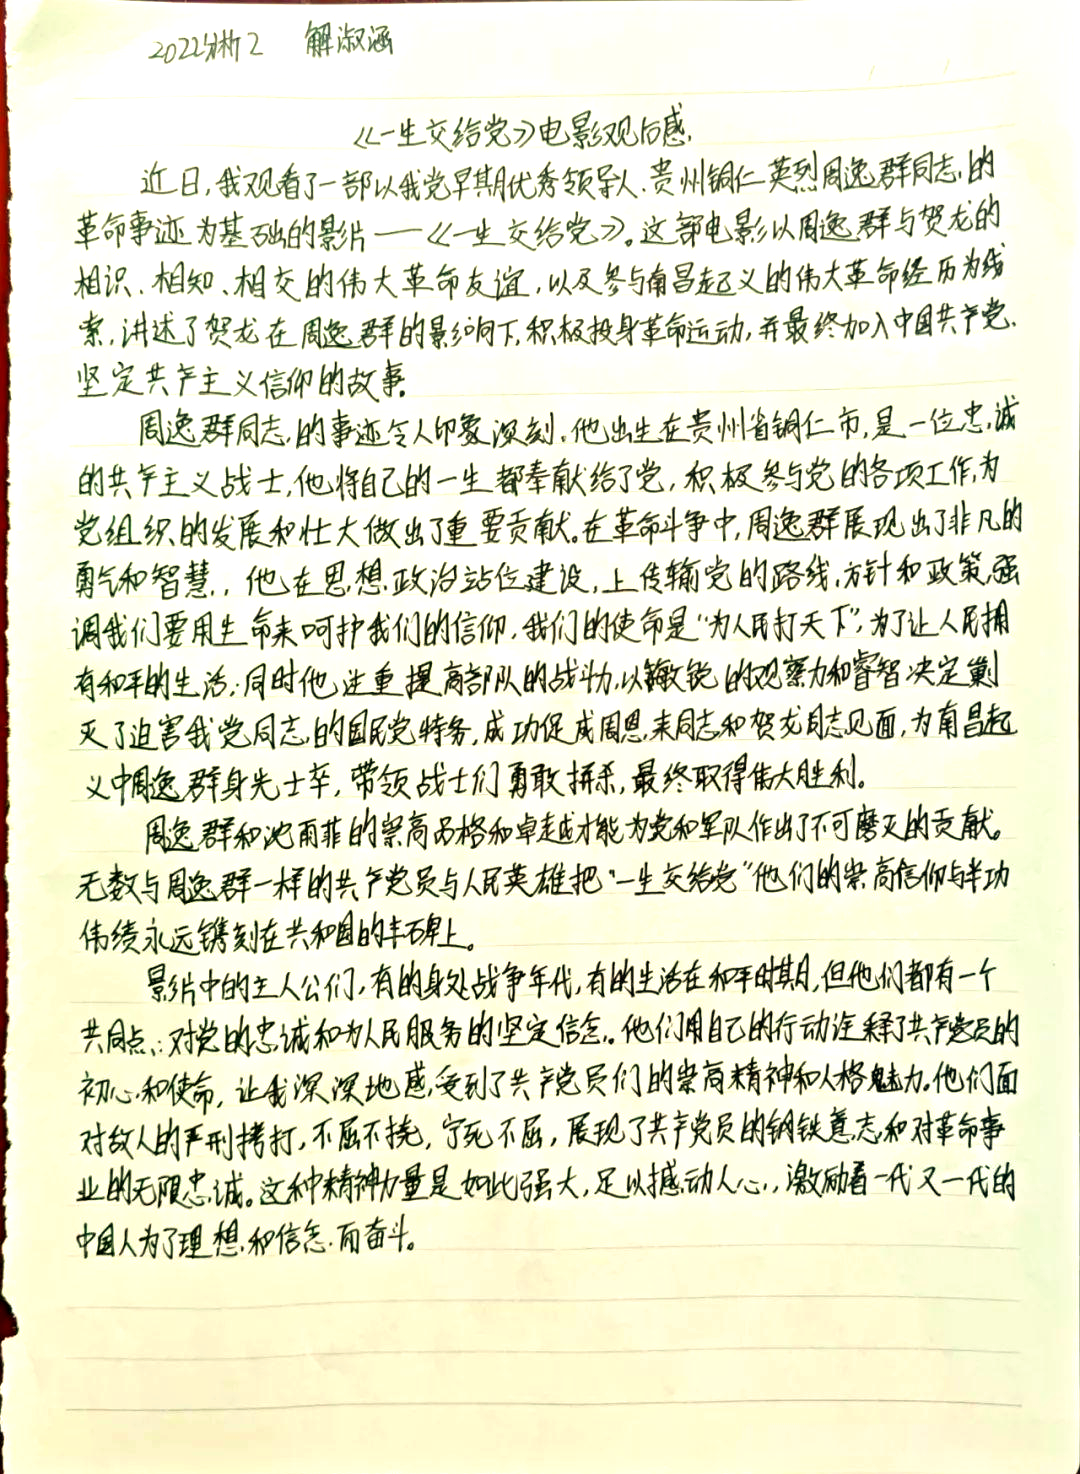 2022分析2 解淑涵
《一生交给党》电影观后感.
近日,我观看了一部以我党早期优秀领导人、贵州铜仁英烈周逸群同志的
革命事迹为基础的影片——《一生交给党》。这部电影以周逸群与贺龙的
相识、相知、相交的伟大革命友谊,以及参与南昌起义的伟大革命经历为线
索,讲述了贺龙在周逸群的影响下,积极投身革命运动,并最终加入中国共产党.
坚定共产主义信仰的故事.
周逸群同志的事迹令人印象深刻.他出生在贵州省铜仁市,是一位忠诚
的共产主义战士,他将自己的一生都奉献给了党,积极参与党的各项工作,为
党组织的发展和壮大做出了重要贡献。在革命斗争中,周逸群展现出了非凡的
勇气和智慧,他在思想政治站位建设,上传输党的路线,方针和政策,强
调我们要用生命来呵护我们的信仰,我们的使命是“为人民打天下”,为了让人民拥
有和平的生活;同时他注重提高部队的战斗力,以敏锐的观察力和睿智决定剿
灭了迫害我党同志的国民党特务,成功促成周恩来同志和贺龙同志见面,为南昌起
义中周逸群身先士卒,带领战士们勇敢拼杀,最终取得伟大胜利。
周逸群和沈雨菲的崇高品格和卓越才能为党和军队作出了不可磨灭的贡献。
无数与周逸群一样的共产党员与人民英雄把“一生交给党”他们的崇高信仰与丰功
伟绩永远镌刻在共和国的丰碑上。
影片中的主人公们,有的身处战争年代,有的生活在和平时期,但他们都有一个
共同点:对党的忠诚和为人民服务的坚定信念.他们用自己的行动诠释了共产党员的
初心和使命,让我深深地感受到了共产党员们的崇高精神和人格魅力.他们面
对敌人的严刑拷打,不屈不挠,宁死不屈,展现了共产党员的钢铁意志和对革命事
业的无限忠诚。这种精神力量是如此强大,足以撼动人心,激励着一代又一代的
中国人为了理想和信念而奋斗。